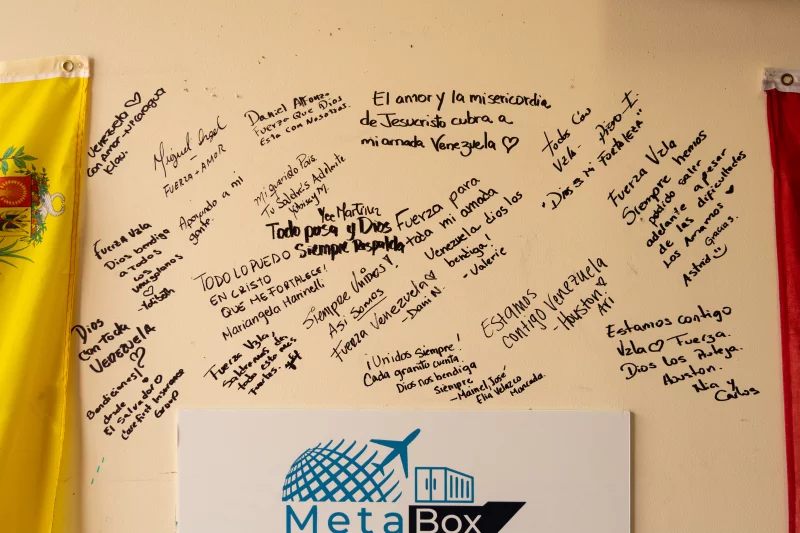 Venezuela ♡
Con Amor - Nicaragua
Klau.
Miguel Angel
FUERZA - AMOR
Daniel Alfonzo
FUERZA QUE DIOS
Esta Con Nosotros.
El amor y la misericordia
de Jesucristo cubra a
mi amada Venezuela ♡
todos Con
Vzla -
"Dios es mi Fortaleza"
Fuerza Vzla
Siempre hemos
podido salir
adelante a pesar
de las dificultades
Los Amamos ♥
Gracias.
Astrid
Mi querido País.
Tu Saldrás Adelante
Apoyando a mi
gente.
FUERZA Vzla
Dios bendiga
a todos
los
venezolanos
♡
Yee Martinez
Todo pasa y Dios
Siempre Respalda
Fuerza para
toda mi amada
Venezuela dios los
bendiga!
- Valerie
TODO LO PUEDO
EN CRISTO
QUE ME FORTALECE!
Mariangela Marinelli
Siempre Unidos!
Así Somos
Fuerza Venezuela ♡
- Dani N.
ESTAMOS
contigo Venezuela
- Houston ♡
Ari
Dios
con Toda
VENEZUELA
♡
Bendiciones!
desde
El Salvador
Care First Insurance
Group
Fuerza Vzla!
Saldremos de
todo esto mas
fuertes.
¡Unidos Siempre!
Cada granito cuenta.
Dios nos bendiga
siempre
- Maimel José
Elia Velazco
Moncada.
Estamos contigo
Vzla ♡ Fuerza.
Dios los Proteja.
Houston.
Nia y
Carlos
MetaBox